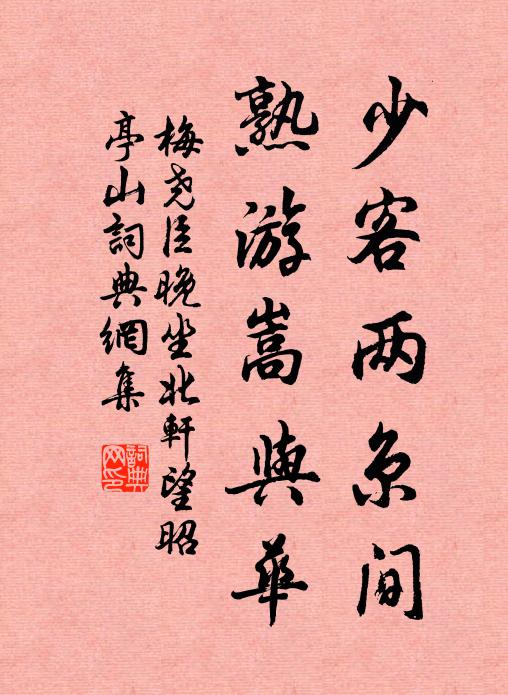 少客两京间
熟游嵩與華
梅尧臣晚坐北軒望昭
亭山詞典網集
詞典网印